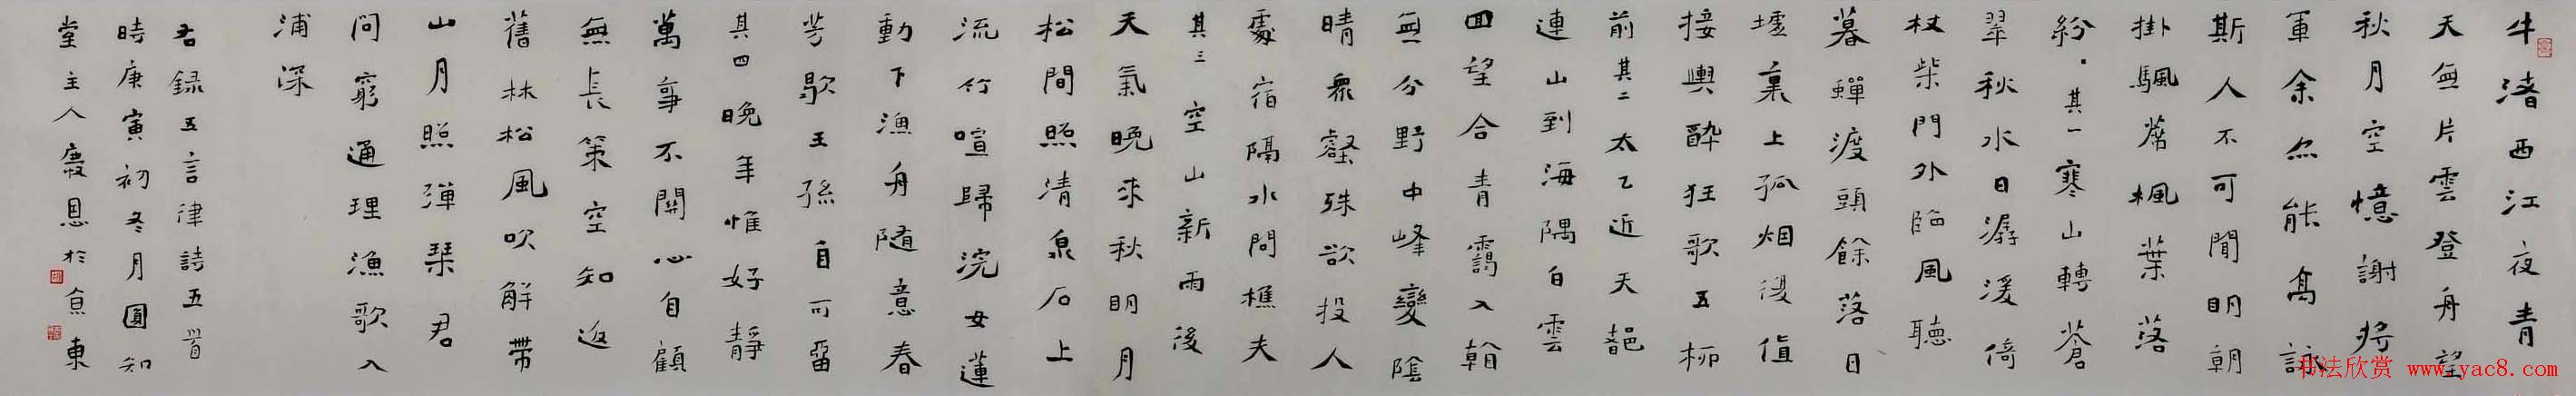 牛渚西江夜青
天無片雲登舟望
秋月空憶謝將
軍余亦能高詠
斯人不可聞明朝
掛颿蓆楓葉落
紛。其一寒山轉蒼
翠秋水日潺湲倚
杖柴門外臨風聽
暮蟬渡頭餘落日
墟裏上孤烟復值
接輿醉狂歌五柳
前其二太乙近天都
連山到海隅白雲
回望合青靄入看
無分野中峰變陰
晴眾壑殊欲投人
處宿隔水問樵夫
其三空山新雨後
天氣晚來秋明月
松間照清泉石上
流竹喧歸浣女蓮
動下漁舟隨意春
芳歇王孫自可留
其四晚年惟好靜
萬事不關心自顧
無長策空知返
舊林松風吹解帶
山月照彈琴君
問窮通理漁歌入
浦深
右録五言律詩五首
時庚寅初冬月圓知
堂主人慶恩於京東
书法欣赏 www.yac8.com